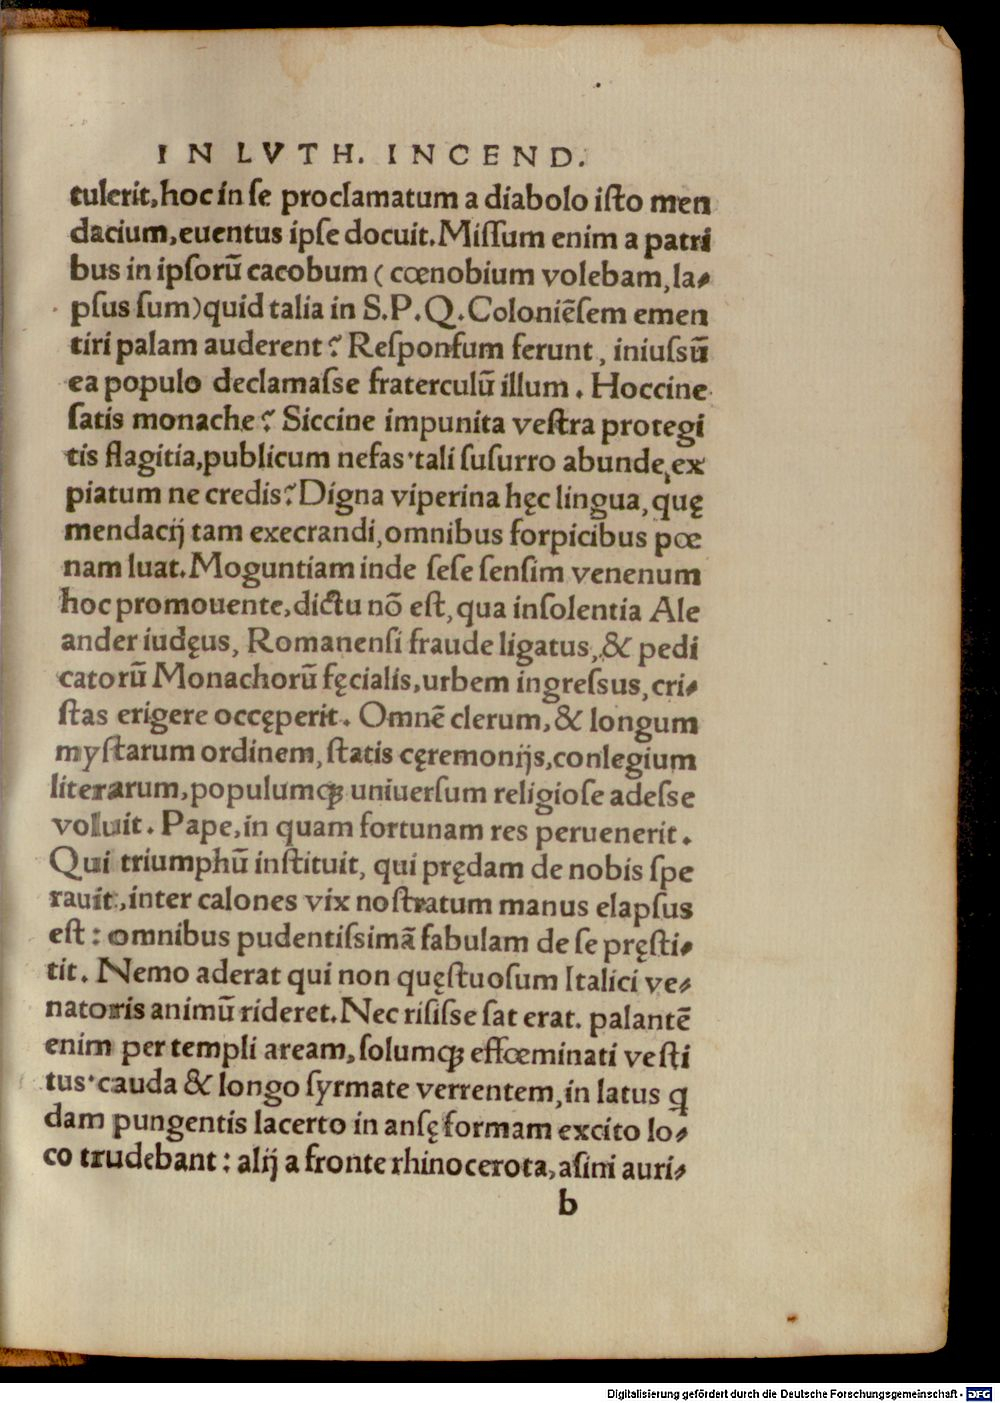 IN LVTH. INCEND.
tulerit, hoc in se proclamatum a diabolo iſto men
dacium, euentus ipſe docuit. Miſſum enim a patri
bus in ipſorũ cacobum ( cœnobium volebam, la⸗
pſus ſum) quid talia in S.P.Q. Coloniẽſem emen
tiri palam auderent? Reſponſum ferunt, iniuſsũ
ea populo declamaſse fraterculũ illum. Hoccine
ſatis monache? Siccine impunita veſtra protegi
tis flagitia, publicum nefas·tali ſuſurro abunde, ex
piatum ne credis? Digna viperina hęc lingua, quę
mendacij tam execrandi, omnibus forpicibus pœ
nam luat. Moguntiam inde ſeſe ſenſim venenum
hoc promouente, dictu nõ eſt, qua inſolentia Ale
ander iudęus, Romanenſi fraude ligatus, & pedi
catorũ Monachorũ fęcialis, urbem ingreſsus, cri⸗
ſtas erigere occęperit. Omnẽ clerum, & longum
myſtarum ordinem, ſtatis cęremonijs, conlegium
literarum, populumꝗ; uniuerſum religioſe adeſse
voluit. Pape, in quam fortunam res peruenerit.
Qui triumphũ inſtituit, qui prędam de nobis ſpe
rauit, inter calones vix noſtratum manus elapſus
eſt: omnibus pudentiſsimã fabulam de ſe pręſti⸗
tit. Nemo aderat qui non quęſtuoſum Italici ve⸗
natoris animũ rideret. Nec riſiſse ſat erat. palantẽ
enim per templi aream, ſolumꝗ; effœminati veſti
tus·cauda & longo ſyrmate verrentem, in latus ꝗ
dam pungentis lacerto in anſę formam excito lo⸗
co trudebant: alij a fronte rhinocerota, aſini auri⸗
b
Digitalisierung gefördert durch die Deutsche Forschungsgemeinschaft - DFG